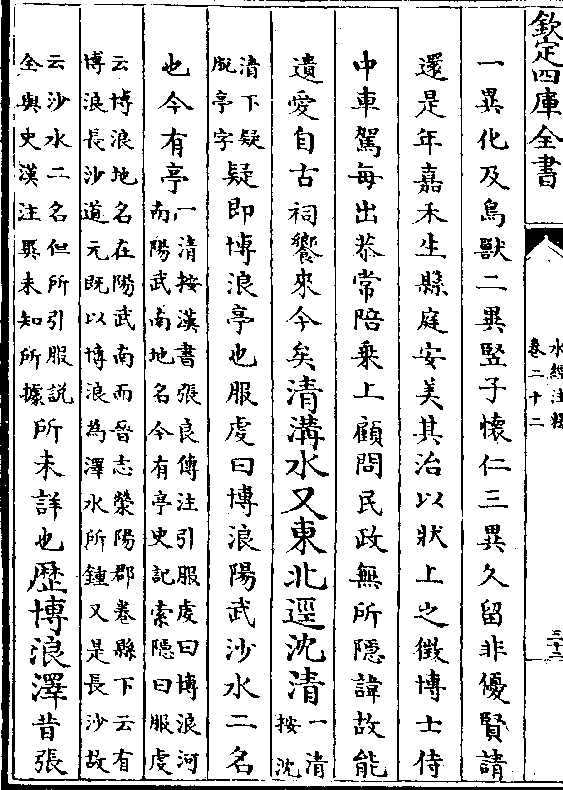 欽定四庫全書
水經注釋
卷二十二
一異化及鳥獸二異竪子懷仁三異久留非優賢請
還是年嘉禾生縣庭安美其治以狀上之徵博士侍
中車駕每出恭常陪乗上顧問民政無所隱諱故能
遺愛自古祠饗來今矣清溝水又東北逕沈清
一清
按沈
清下疑
脫亭字
疑即博浪亭也服虔曰博浪陽武沙水二名
也今有亭
一清按漢書張良傳注引服虔曰博浪河
南陽武南地名今有亭史記索隱曰服虔
云博浪地名在陽武南而晉志滎陽郡卷縣下云有
博浪長沙道元既以博浪為澤水所鍾又是長沙故
云沙水二名但所引服説
全與史漢注異未知所據
所未詳也歴博浪澤昔張